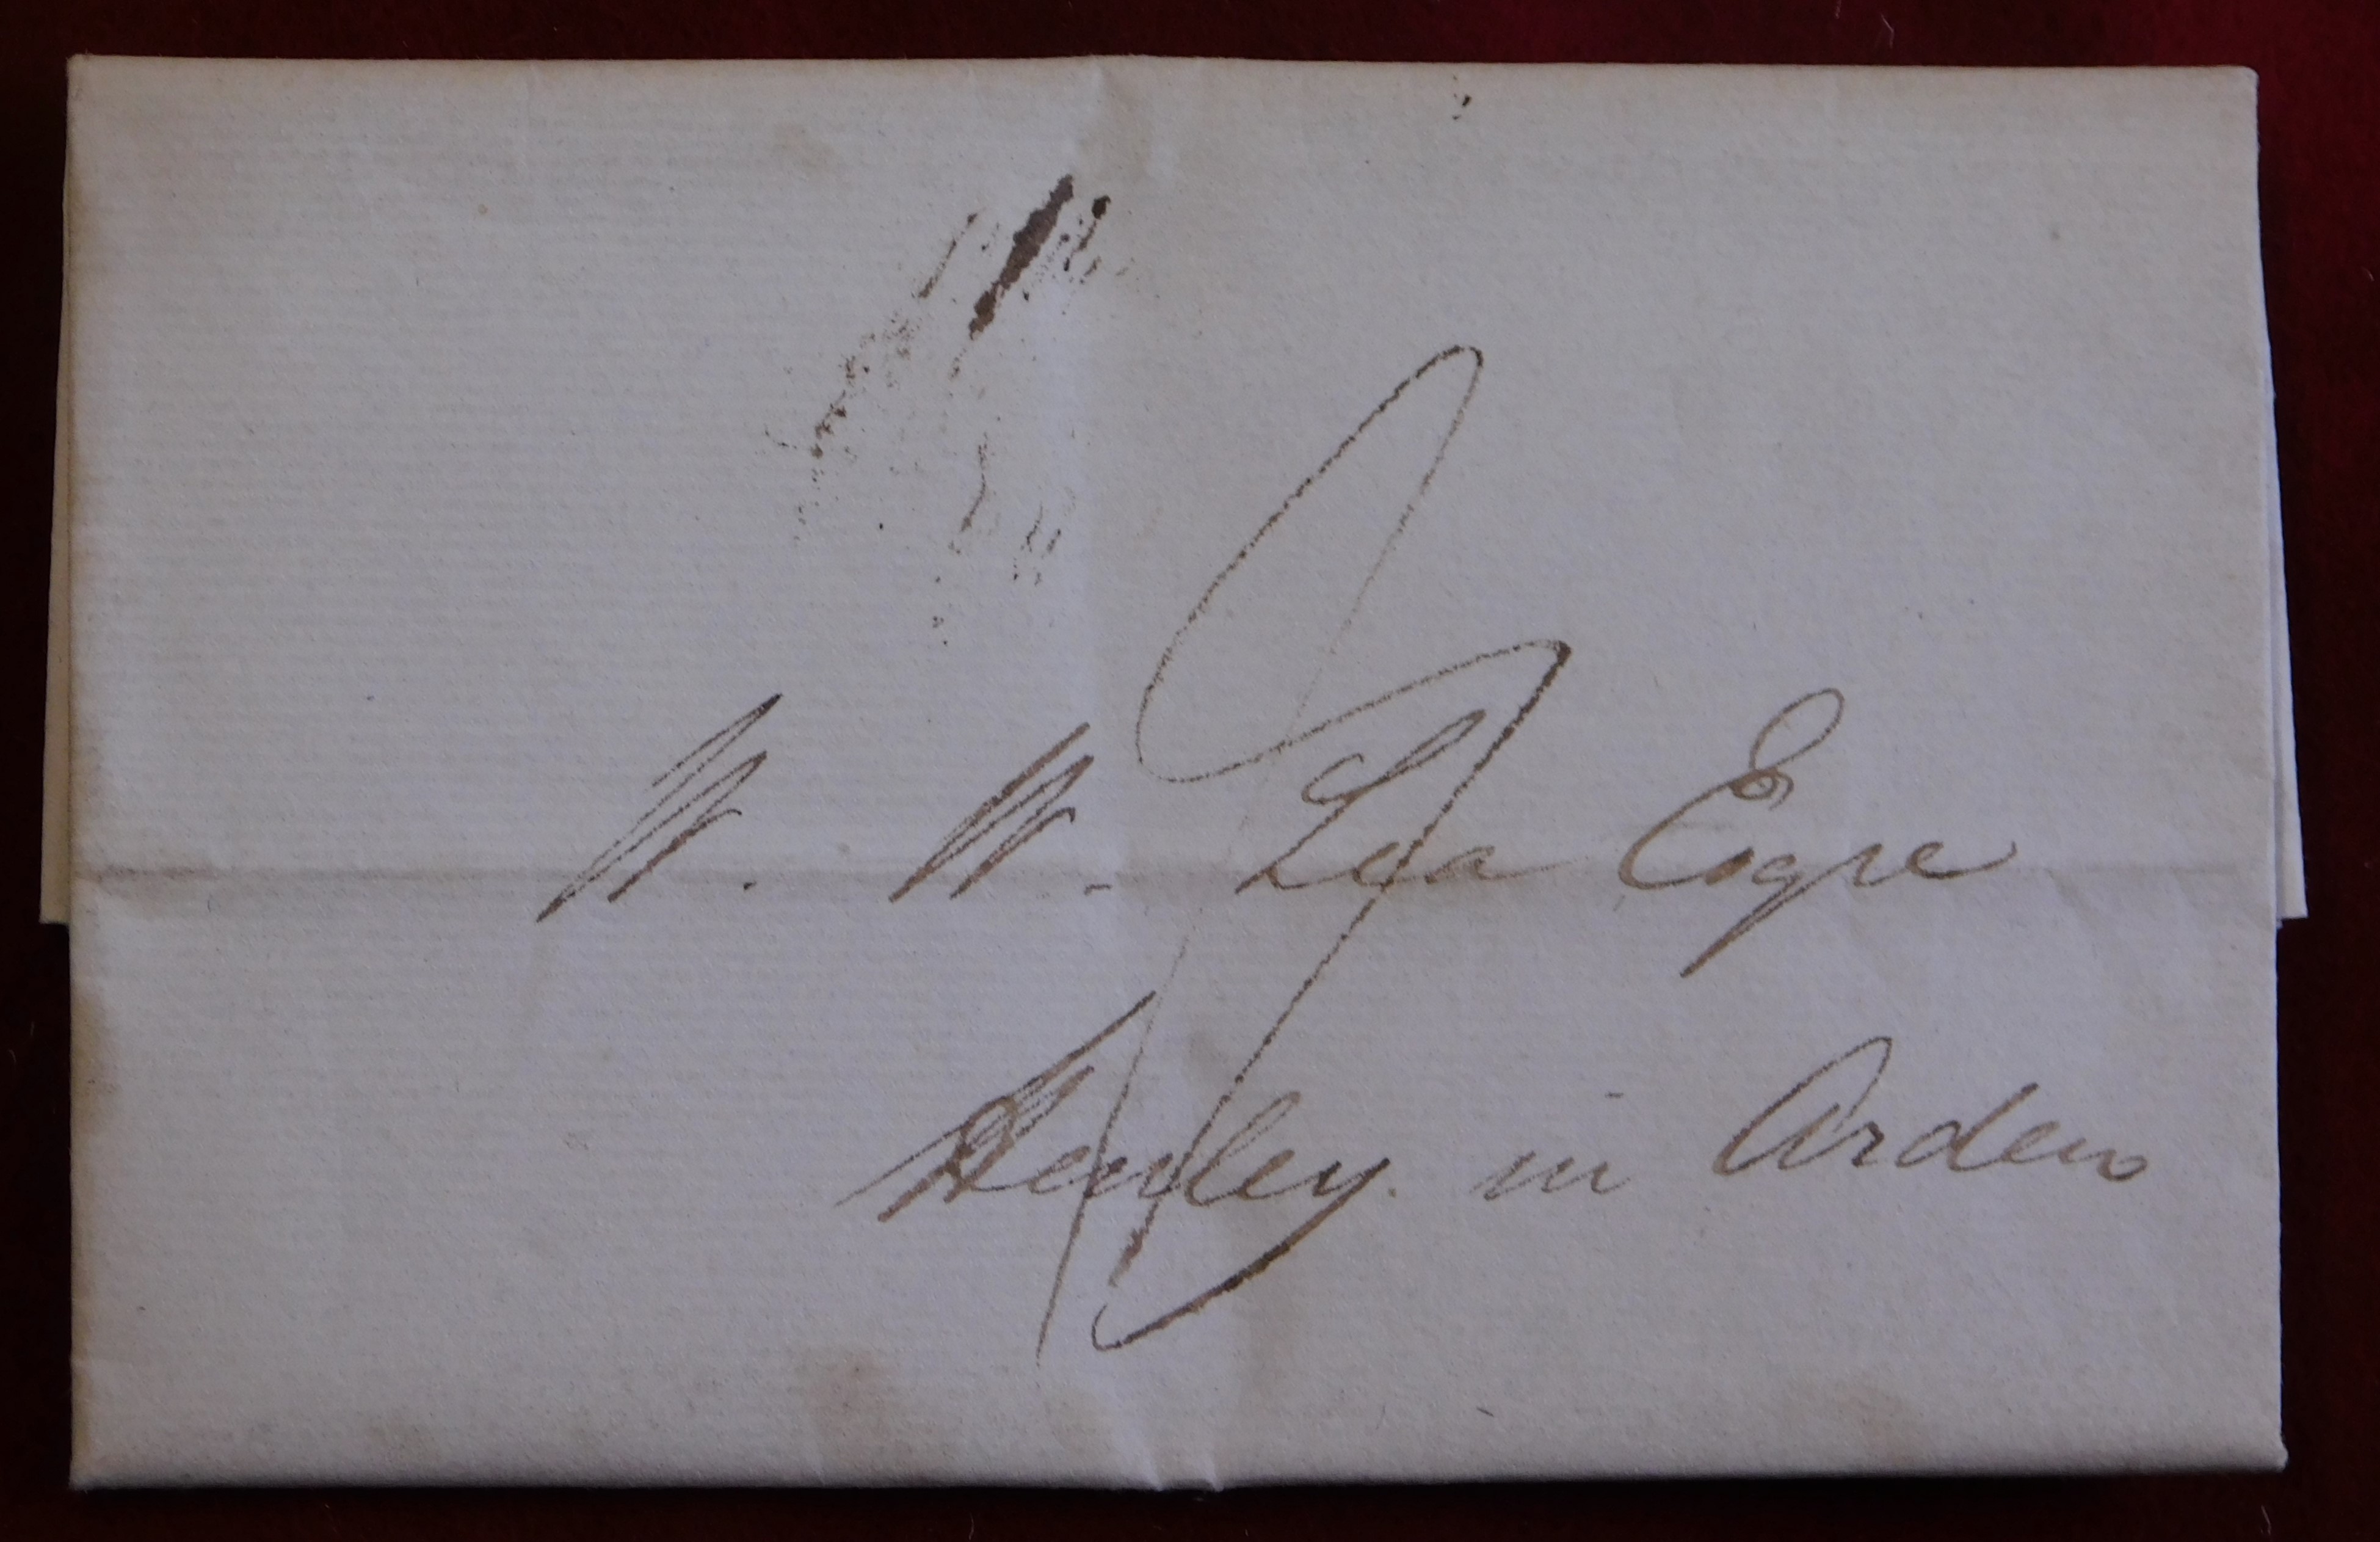 W. W. Lea Esqre
Henley. in Arden